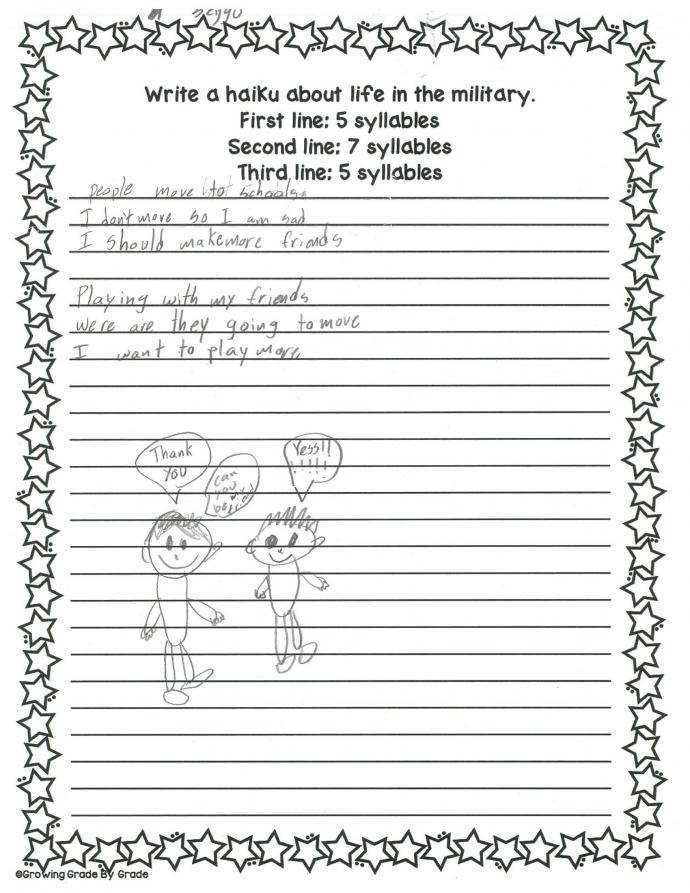 Write a haiku about life in the military.
First line: 5 syllables
Second line: 7 syllables
Third line: 5 syllables
people move to schools.
I don't move so I am sad
I should make more friends
Playing with my friends
were are they going to move
I want to play more
Thank
you
can
you
be my
friend
Yess!!
!!!!!
©Growing Grade By Grade